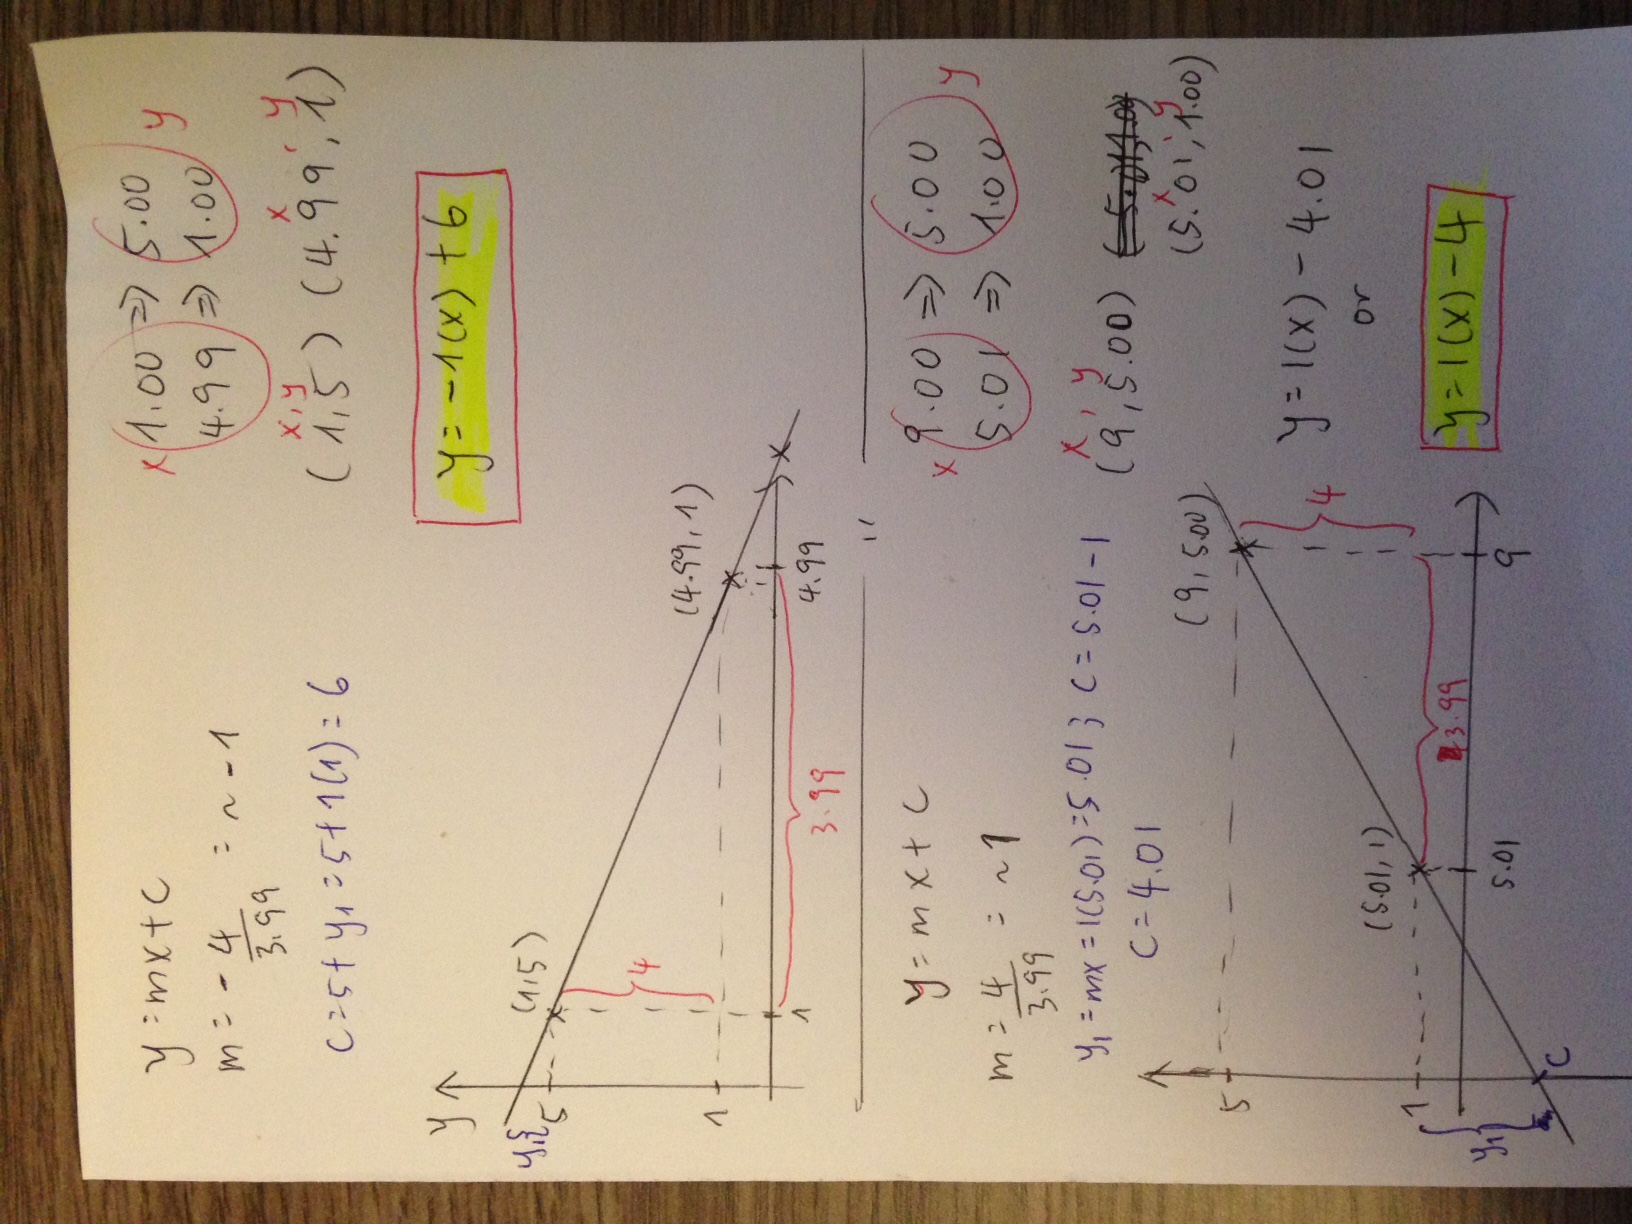 y = mx + c
m = - 4/3.99 = ~ -1
c = 5 + y1 = 5 + 1(1) = 6
x 1.00 => 5.00 y
4.99 => 1.00
x, y x , y
(1,5) (4.99, 1)
y = -1(x) + 6
y
y1{
5
(1,5)
4
(4.99, 1)
1
x
1
3.99
4.99
y = mx + c
m = 4/3.99 = ~1
y1 = mx = 1(5.01) = 5.01; c = 5.01 - 1
c = 4.01
x 9.00 => 5.00 y
5.01 => 1.00
x, y
(9, 5.00)
x , y
(5.01, 1.00)
(9, 5.00)
5
4
y = 1(x) - 4.01
or
y = 1(x) - 4
(5.01, 1)
1
3.99
y1
5.01
9
c